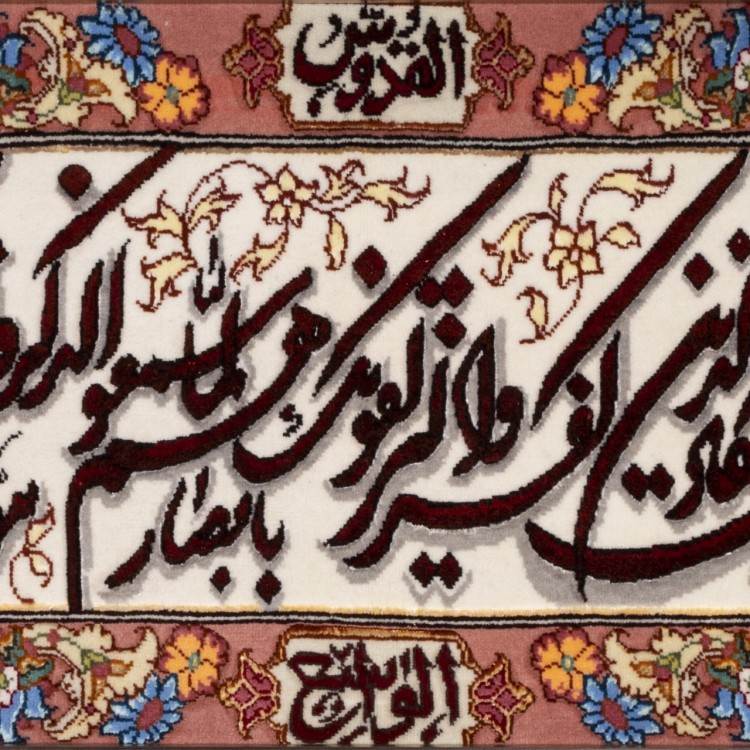 القدوس
وان یکاد الذین کفروا لیزلقونک بابصارهم لما سمعوا الذکر
الواسع